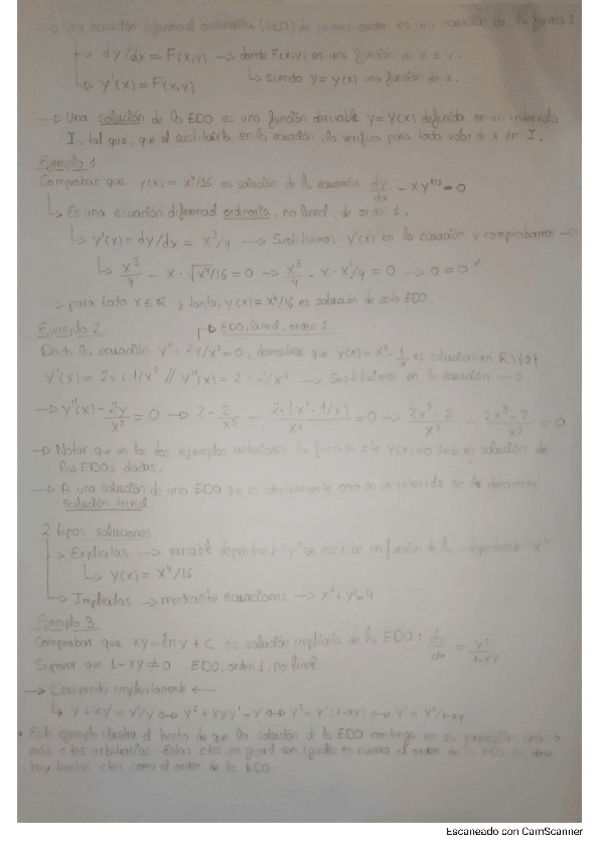 → Una ecuación diferencial ordinaria (EDO) de primer orden es una ecuación de la forma:
→ dy/dx = F(x,y) → donde F(x,y) es una función de x e y.
↳ y'(x) = F(x,y) ↳ siendo y = y(x) una función de x.
→ Una solución de la EDO es una función derivable y = y(x) definida en un intervalo
I, tal que, que al sustituirla en la ecuación, la verifica para todo valor de x en I.
Ejemplo 1
Comprobar que y(x) = x⁴/16 es solución de la ecuación dy/dx - xy^1/2 = 0
↳ Es una ecuación diferencial ordinaria, no lineal, de orden 1.
↳ y'(x) = dy/dx = x³/4 → Sustituimos y'(x) en la ecuación y comprobamos →
↳ x³/4 - x · √x⁴/16 = 0 → x³/4 - x · x²/4 = 0 → 0 = 0 ✓
→ para todo x ∈ ℝ y tanto, y(x) = x⁴/16 es solución de esta EDO.
Ejemplo 2 → EDO, lineal, orden 2.
Dada la ecuación y'' - 2y/x² = 0, demostrar que y(x) = x² - 1/x es solución en ℝ\{0}
y'(x) = 2x + 1/x² // y''(x) = 2 - 2/x³ → Sustituimos en la ecuación →
→ y''(x) - 2y/x² = 0 → 2 - 2/x³ - 2·(x² - 1/x)/x² = 0 → 2x³ - 2/x³ - 2x³ - 2/x³ = 0
→ Notar que en los dos ejemplos anteriores la función cte y(x) = 0 tmb es solución de
las EDOs dadas.
→ A una solución de una EDO que es idénticamente cero en un intervalo se le denomina
solución trivial
2 tipos soluciones
→ Explícitas → variable dependiente "y" se escribe en función de la independiente "x"
↳ y(x) = x⁴/16
↳ Implícitas → mediante ecuaciones → x² + y² = 4
Ejemplo 3
Comprobar que xy = ln y + c es solución implícita de la EDO: dy/dx = y²/1-xy
Suponer que 1 - xy ≠ 0 EDO, orden 1, no lineal
→ Derivando implícitamente ←
↳ y + xy' = y'/y ⇔ y² + xyy' = y' ⇔ y² = y'(1-xy) ⇔ y' = y²/1-xy
• Este ejemplo ilustra el hecho de que la solución de la EDO contenga en su expresión una o
más ctes arbitrarias. Estas ctes, en general son iguales en número al orden de la EDO, es decir
hay tantas ctes como el orden de la EDO
Escaneado con CamScanner